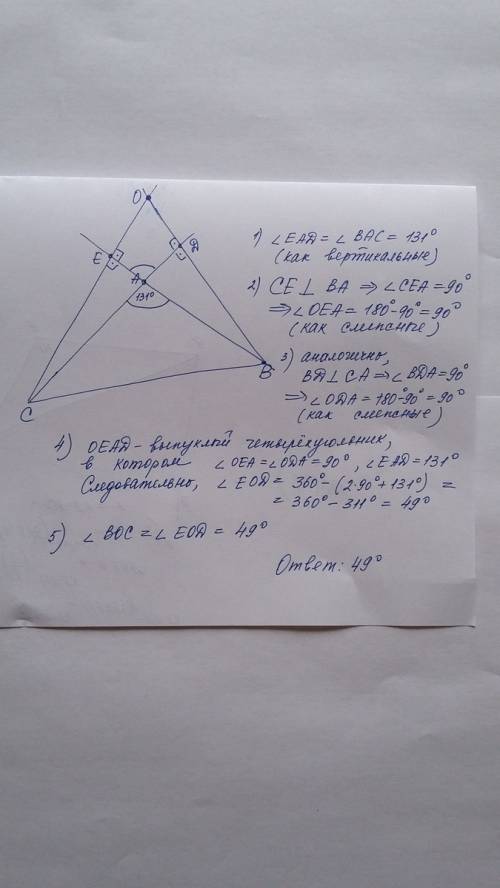 O
E
D
A
131°
B
C
1) ∠EAD = ∠BAC = 131°
(как вертикальные)
2) CE ⊥ BA ⇒ ∠CEA = 90°
⇒ ∠OEA = 180° - 90° = 90°
(как смежные)
3) аналогично,
BD ⊥ CA ⇒ ∠BDA = 90°
⇒ ∠ODA = 180° - 90° = 90°
(как смежные)
4) OEAD - выпуклый четырёхугольник,
в котором ∠OEA = ∠ODA = 90°, ∠EAD = 131°
Следовательно, ∠EOD = 360° - (2·90° + 131°) =
= 360° - 311° = 49°
5) ∠BOC = ∠EOD = 49°
Ответ: 49°